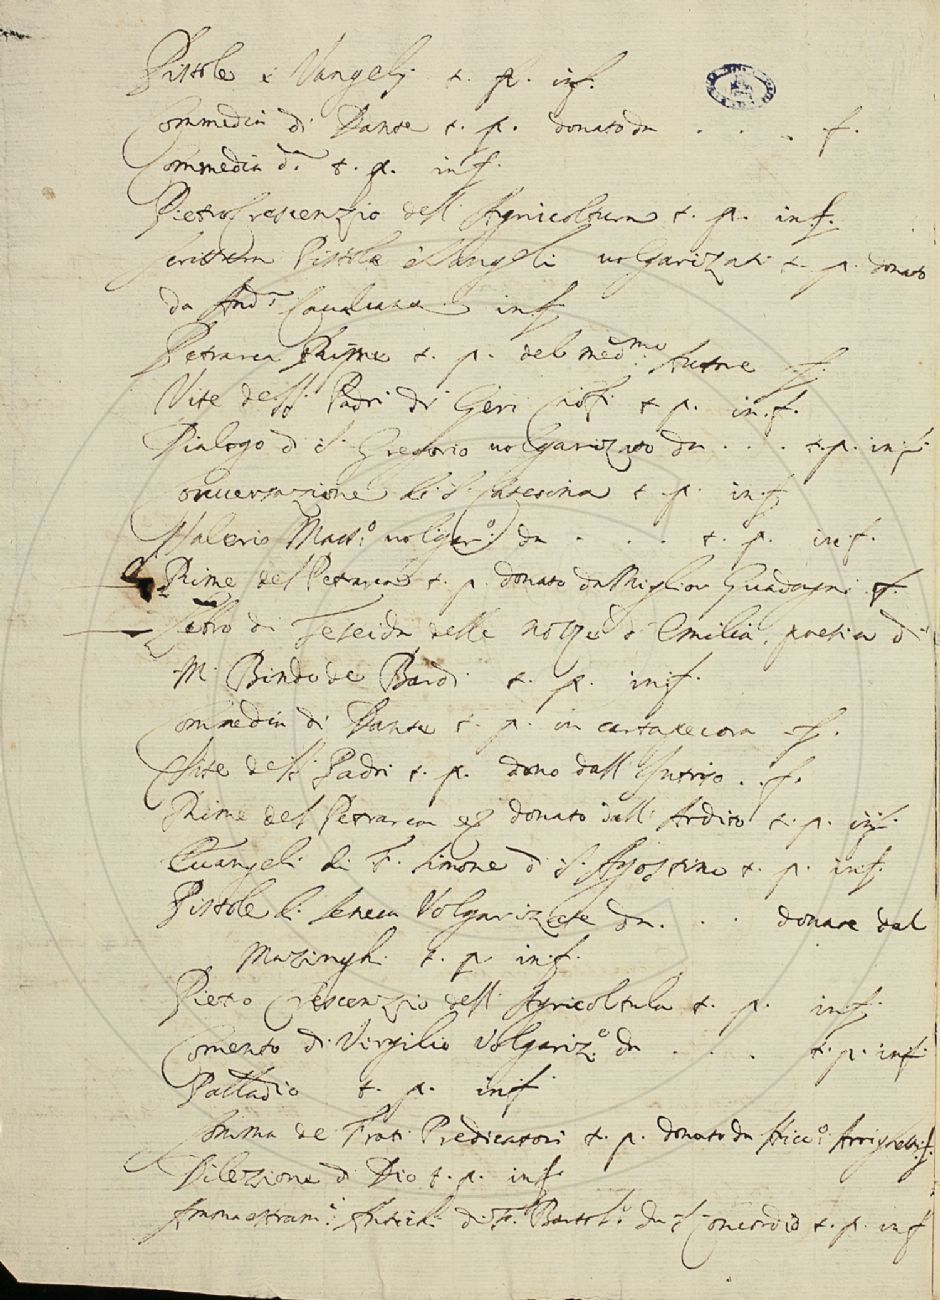 Pistole e Vangelj t. p. inf.
Commedia di Dante t. p. donato da . . . f.
Commedia d.ª t. p. inf.
Pietro Crescenzio dell' Agricoltura t. p. inf.
Scrittura Pistole e Vangeli uolgarizati t. p. donato
da And.ª Caualcanti inf.
Petrarca Rime t. p. del med.mo f.
Vite de SS. Padri di Geri t. p. in f.
Dialogo di S. Gregorio uolgarizato da . . . t. p. in f.
Conuersazione di S. Caterina t. p. in f.
Valerio Mass.º uolgar.º da . . . t. p. in f.
Rime del Petrarca t. p. donato da Miglior Guadagni f.
Libro di Teseida delle nozze d' Emilia, poesia di
M. Bindo de Bardi t. p. in f.
Commedia di Dante t. p. in cartapecora f.
Vite de SS. Padri t. p. dono dall' Intriso . . f.
Rime del Petrarca donato dall' Ardito t. p. in f.
Euangeli di F. Simone d S. Agostino t. p. in f.
Pistole di Seneca Volgarizate da . . . donate dal
Mazinghi t. p. in f.
Pietro Crescenzio dell' Agricoltura t. p. in f.
Comento di Virgilio Volgariz.º da . . . t. p. in f.
Palladio t. p. in f.
Somma de Frati Predicatori t. p. donato da Nicc.º Arrighetti f.
Dilezione di Dio t. p. in f.
Ammaestram.ti Antichi di F. Bartol.º da S. Concordio t. p. in f